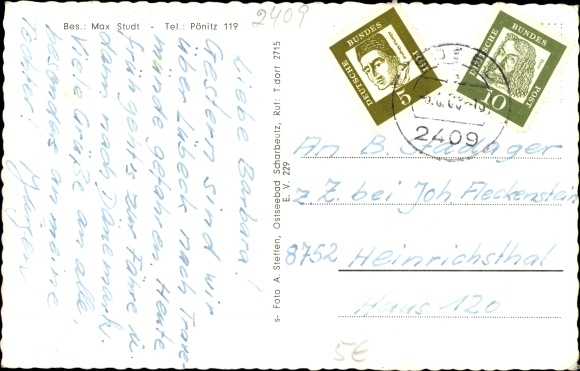 Bes.: Max Studt - Tel.: Pönitz 119
2409
Liebe Barbara!
Gestern sind wir
über Lübeck nach Trave
münde gefahren. Heute
früh geht's zur Fähre u.
dann nach Dänemark.
Viele Grüße an alle,
besonders an meine
Jürgen
s- Foto A. Steffen, Ostseebad Scharbeutz, Ruf: T dorf 2715
E. V. 229
DEUTSCHE BUNDES POST
5
DEUTSCHE BUNDES POST
10
2409
An B. Stadtager
z. Z. bei Joh. Fleckenstein
8752 Heinrichsthal
Haus 120
5€